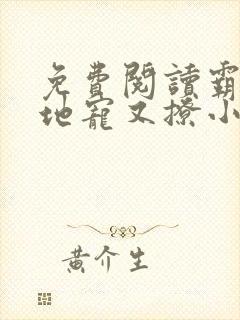 免費閱讀霸
地寵又撩小
黃介生